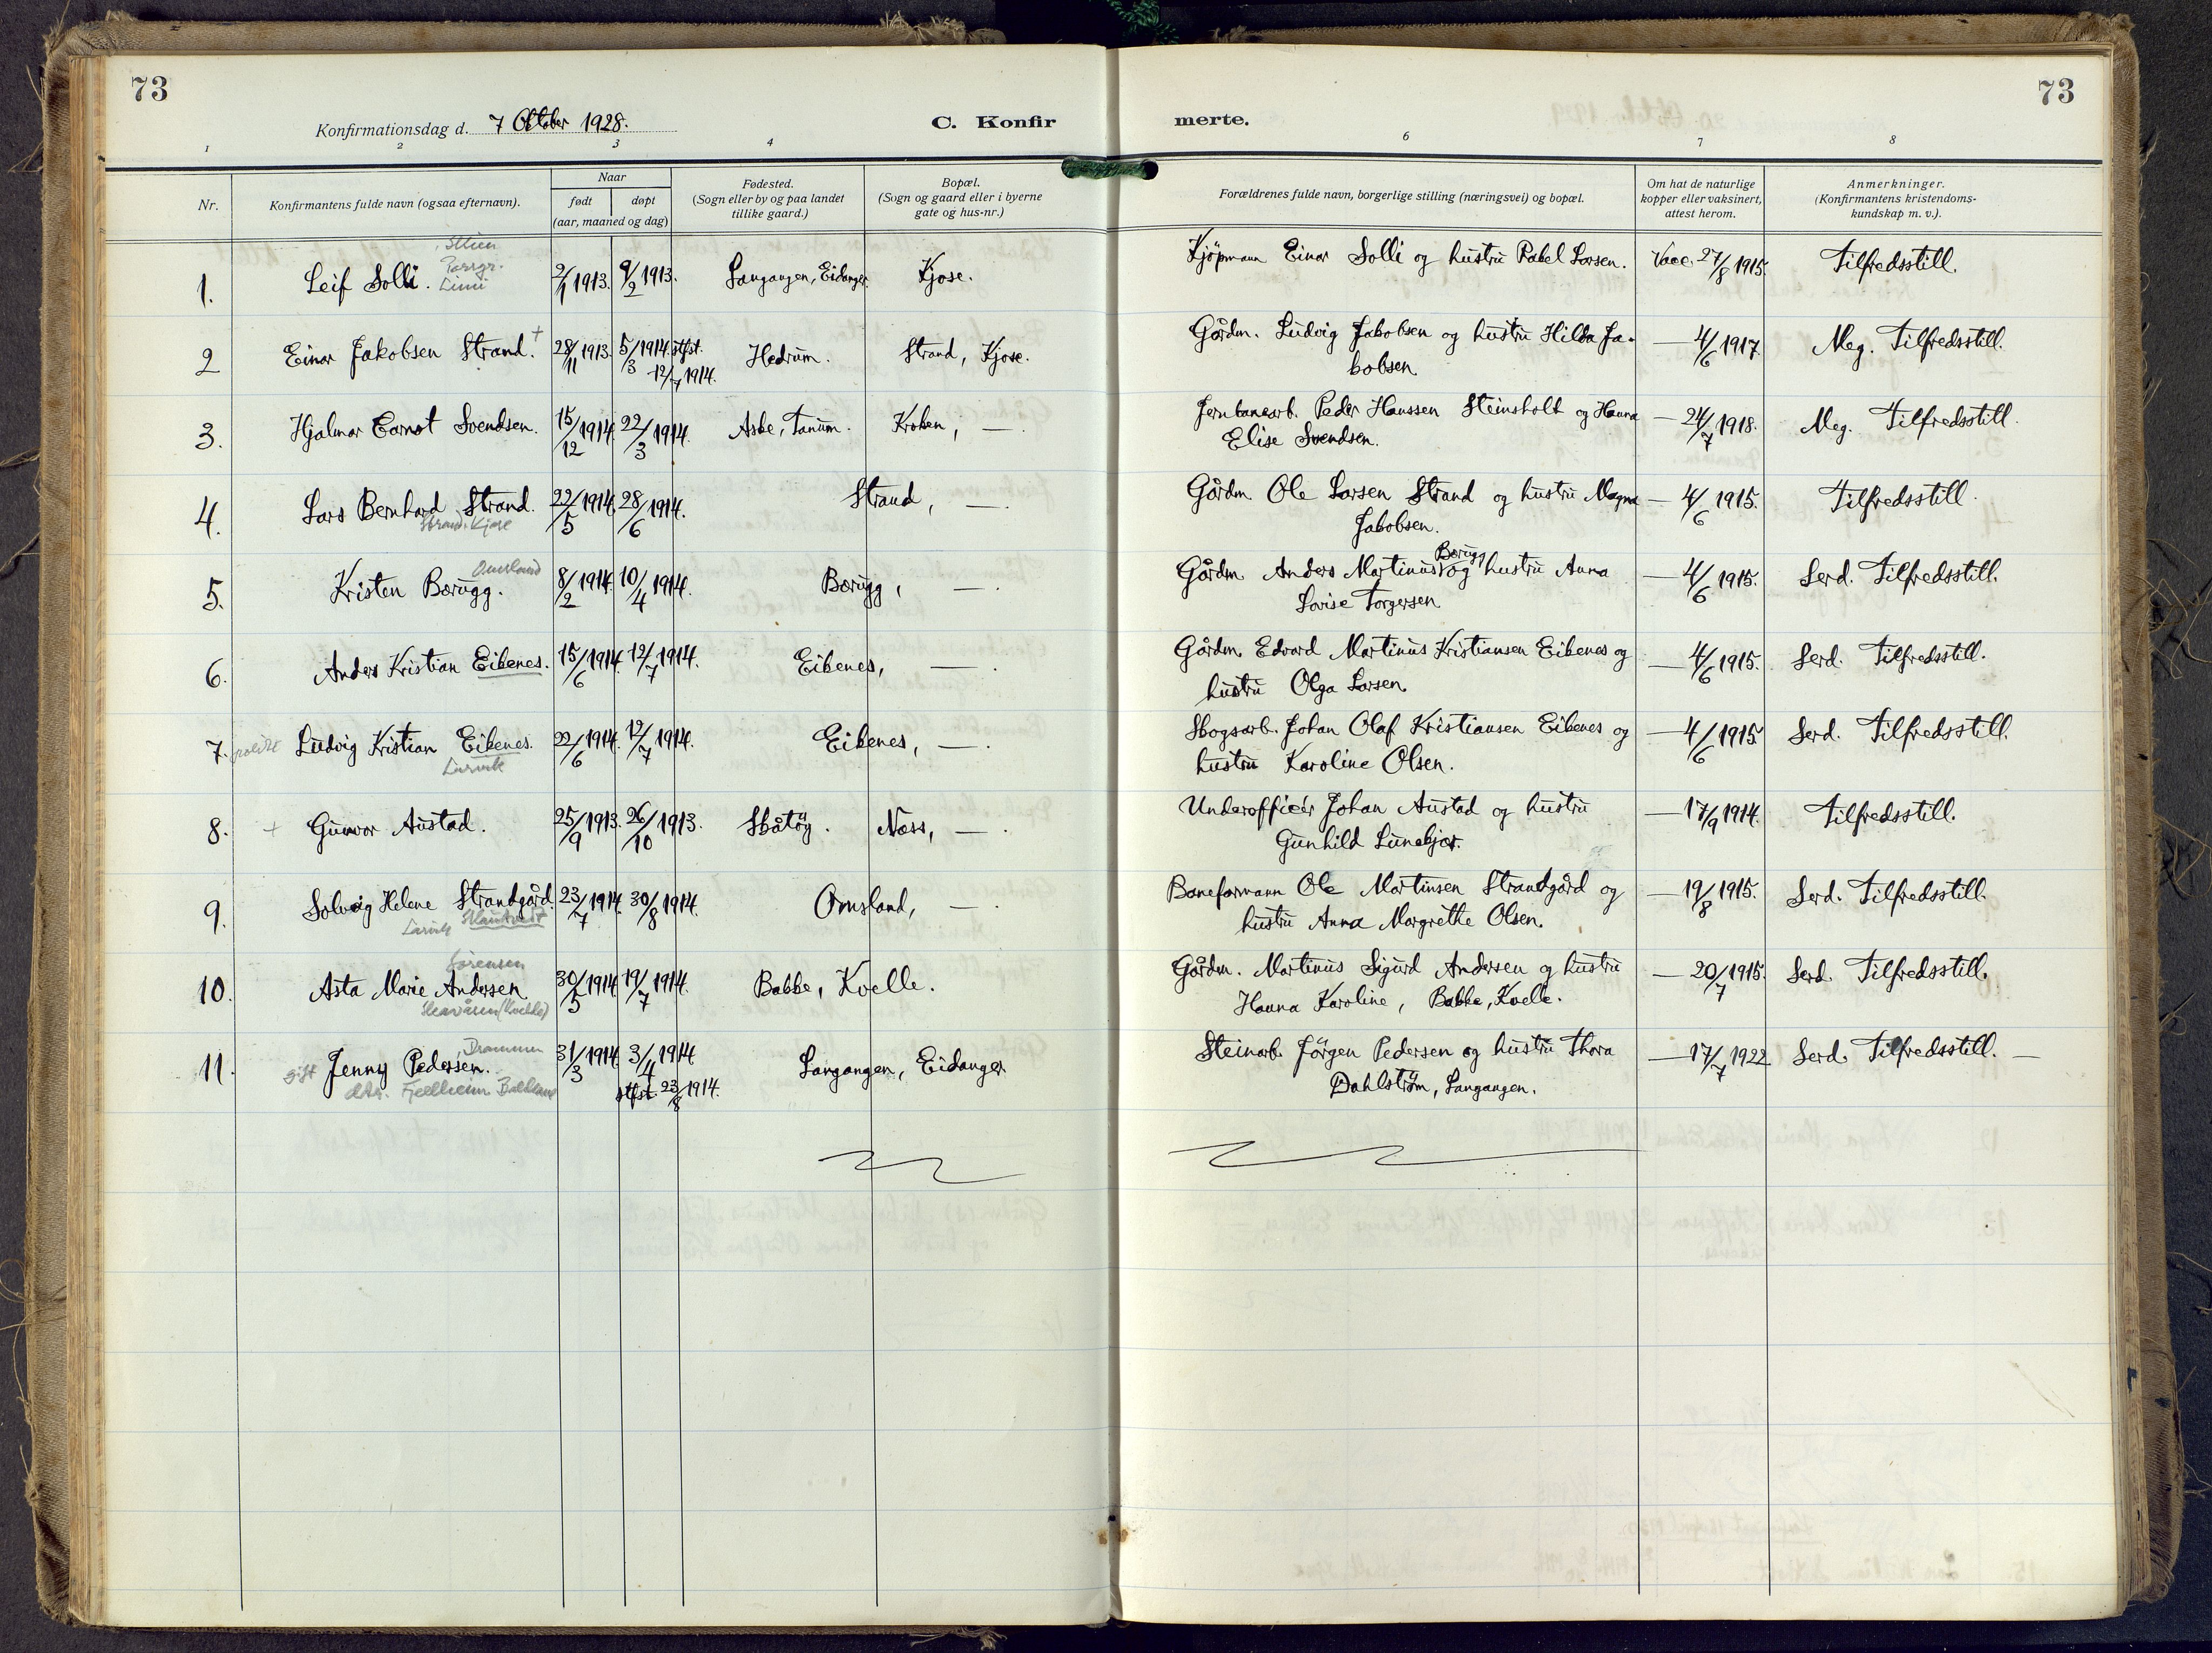 73
73
Konfirmationsdag d. 7 Oktober 1928.
C. Konfir
merte.
1 2 3 4 6 7 8
Nr.
Konfirmantens fulde navn (ogsaa efternavn).
Naar
født døpt
(aar, maaned og dag)
Fødested.
(Sogn eller by og paa landet
tillike gaard.)
Bopæl.
(Sogn og gaard eller i byerne
gate og hus-nr.)
Forældrenes fulde navn, borgerlige stilling (næringsvei) og bopæl.
Om hat de naturlige
kopper eller vaksinert,
attest herom.
Anmerkninger.
(Konfirmantens kristendoms-
kundskap m. v.).
1. Leif Solli. 2/1 1913. 9/2 1913. Langangen, Eidanger. Kjose. Kjöpmann Einar Solli og hustru Rakel Larsen. Vacc. 27/8 1915. Tilfredsstill.
2 Einar Jakobsen Strand. + 28/11 1913. 5/3 1914. stfst. 12/7 1914. Hedrum. Strand, Kjose. Gårdm. Ludvig Jakobsen og hustru Hilda Ja-
kobsen. — 4/6 1917. Meg. Tilfredsstill.
3. Hjalmar Ernst Svendsen. 15/12 1914. 22/3 1914. Aske, Tanum. Kroken, —. Jernbanearb. Peder Hanssen Steinsholt og Hanna
Elise Svendsen. — 24/7 1918. Meg. Tilfredsstill.
4. Lars Bernhard Strand. 22/5 1914. 28/6 1914. Strand, —. Gårdm. Ole Larsen Strand og hustru Magna
Jakobsen. — 4/6 1915. Tilfredsstill.
Strand, Kjose
5. Kristen Bærugg. Omsland 8/2 1914. 10/4 1914. Bærugg, —. Gårdm. Anders Martinus Bærugg og hustru Anna
Lovise Torgersen. — 4/6 1915. Serd. Tilfredsstill.
6. Anders Kristian Eikenes. 15/6 1914. 12/7 1914. Eikenes, —. Gårdm. Edvard Martinus Kristiansen Eikenes og
hustru Olga Larsen. — 4/6 1915. Serd. Tilfredsstill.
7. politi Ludvig Kristian Eikenes. 22/6 1914. 12/7 1914. Eikenes, —. Skogsarb. Johan Olaf Kristiansen Eikenes og
hustru Karoline Olsen. — 4/6 1915. Serd. Tilfredsstill.
Larvik
8. + Gunvor Austad. 25/9 1913. 26/10 1913. Skåtøy. Næss, —. Underofficér Johan Austad og hustru
Gunhild Lunekjær. — 17/9 1914. Tilfredsstill.
9. Solveig Helene Strandgård. 23/7 1914. 30/8 1914. Omsland, —. Baneformann Ole Martinsen Strandgård og
hustru Anna Margrethe Olsen. — 19/8 1915. Serd. Tilfredsstill.
Larvik
Sørensen
10. Asta Marie Andersen 30/5 1914. 19/7 1914. Bakke, Kvelle. Gårdm. Martinus Sigurd Andersen og hustru
Hanna Karoline, Bakke, Kvelle. — 20/7 1915. Serd. Tilfredsstill.
(Kvelde)
Drammen
11. gift Jenny Pedersen. 31/3 1914. 3/4 1914 stfst. 23/8 1914. Langangen, Eidanger. Steinarb. Jörgen Pedersen og hustru Thora
Dahlström, Langangen. — 17/7 1922 Serd. Tilfredsstill. —
Fjellheim